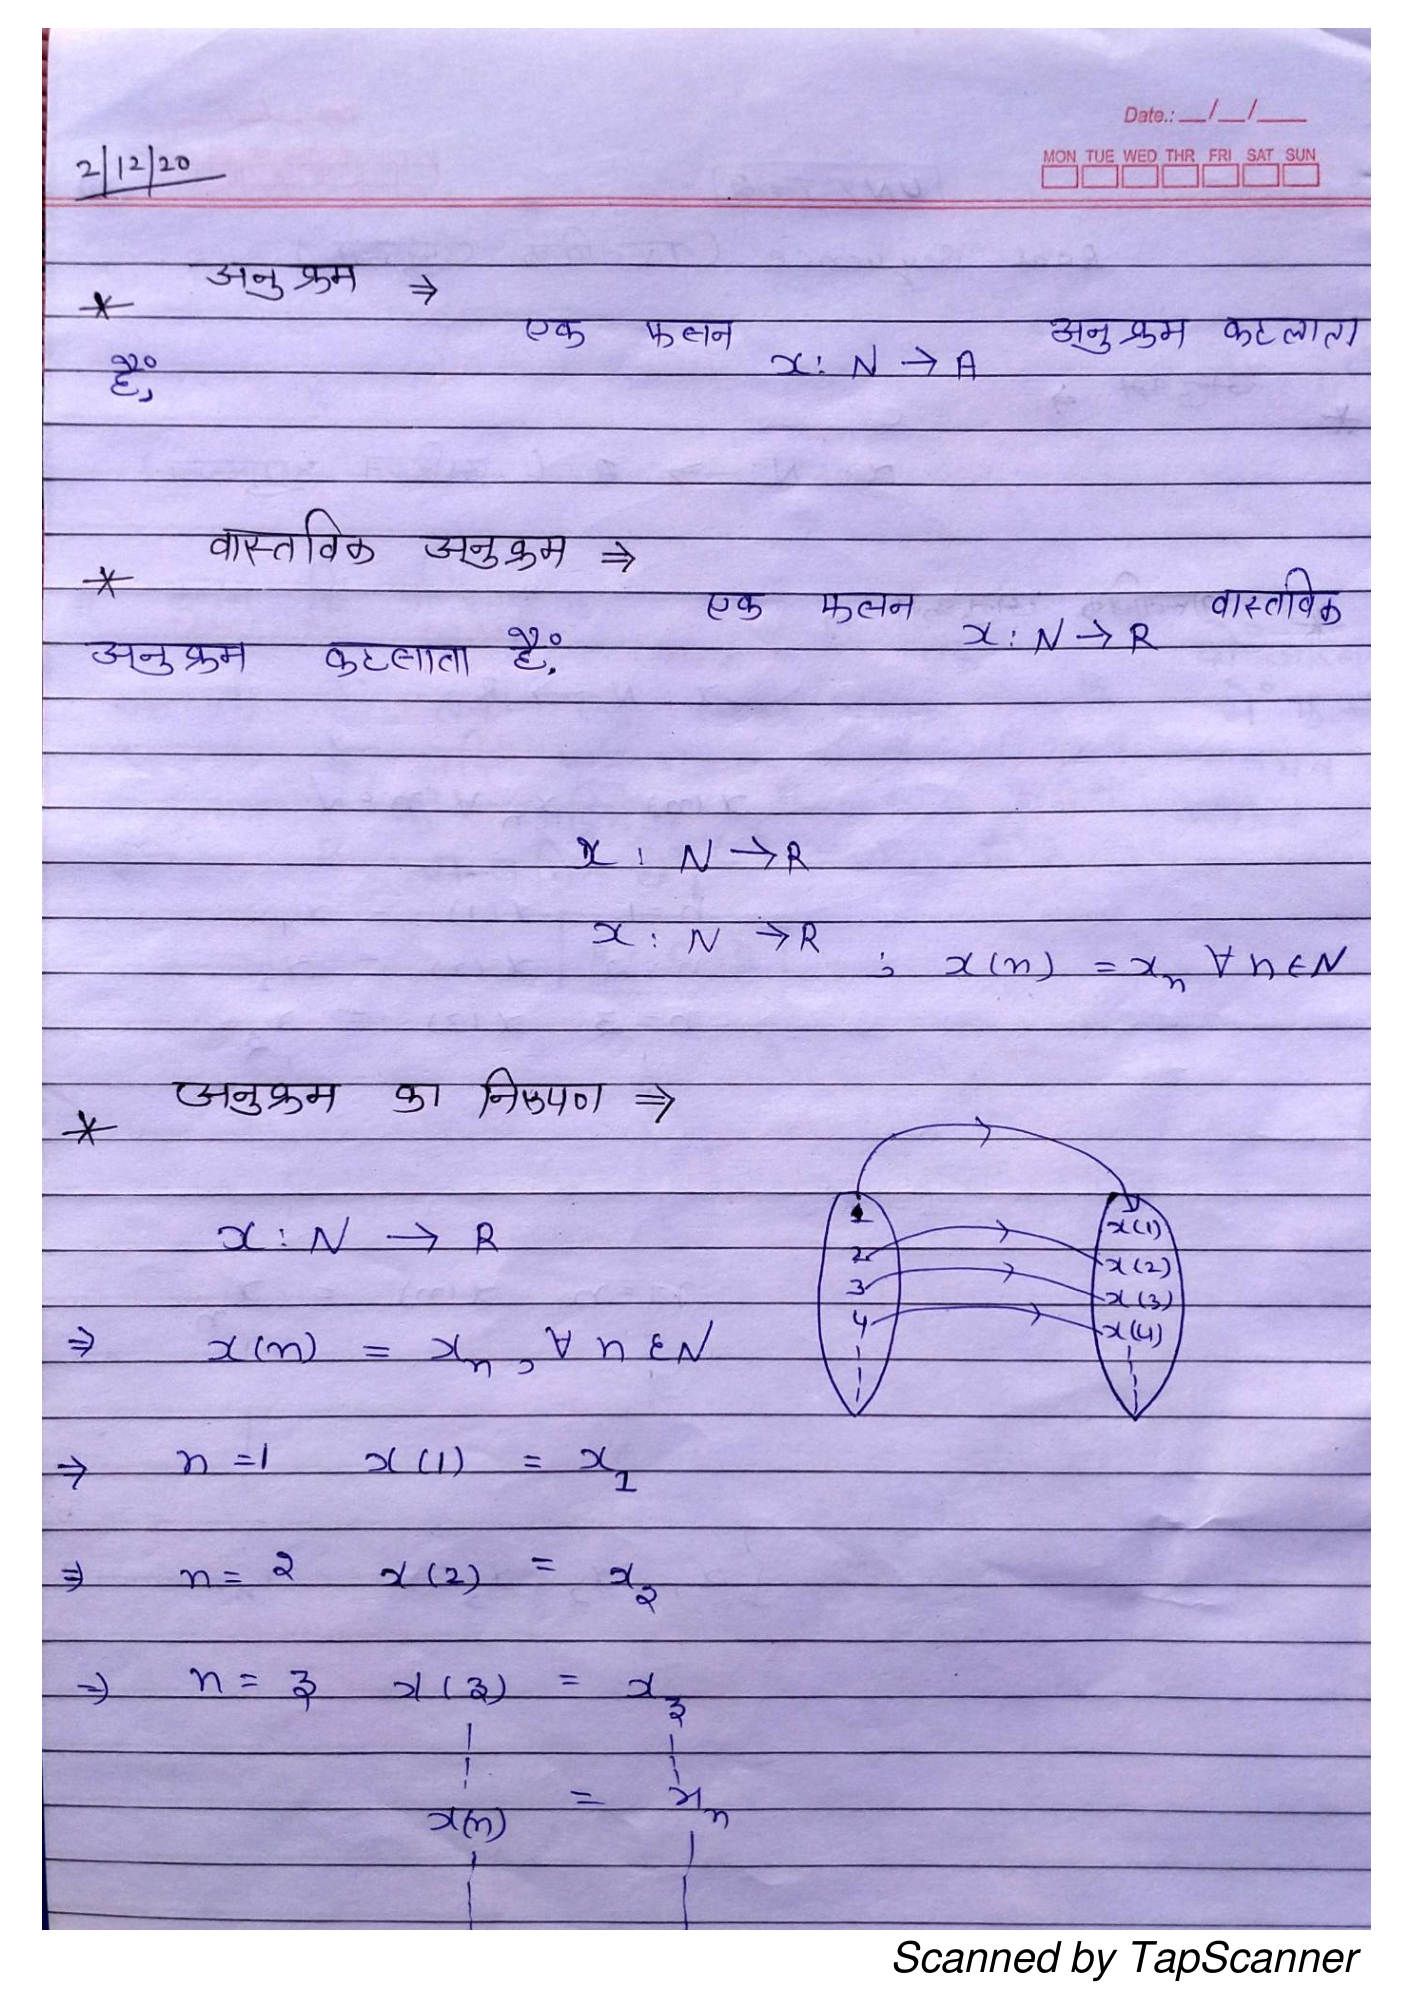 Date.: __/__/___
MON TUE WED THR FRI SAT SUN
2/12/20
* अनुक्रम ⇒
एक फलन x : N → A अनुक्रम कहलाता
हैं,
* वास्तविक अनुक्रम ⇒
एक फलन x : N → R वास्तविक
अनुक्रम कहलाता हैं,
x : N → R
x : N → R ; x(n) = xₙ ∀ n ∈ N
* अनुक्रम का निरूपण ⇒
x : N → R
⇒ x(n) = xₙ, ∀ n ∈ N
1 x(1)
2 x(2)
3 x(3)
4 x(4)
⇒ n = 1 x(1) = x₁
⇒ n = 2 x(2) = x₂
⇒ n = 3 x(3) = x₃
x(n) = xₙ
Scanned by TapScanner